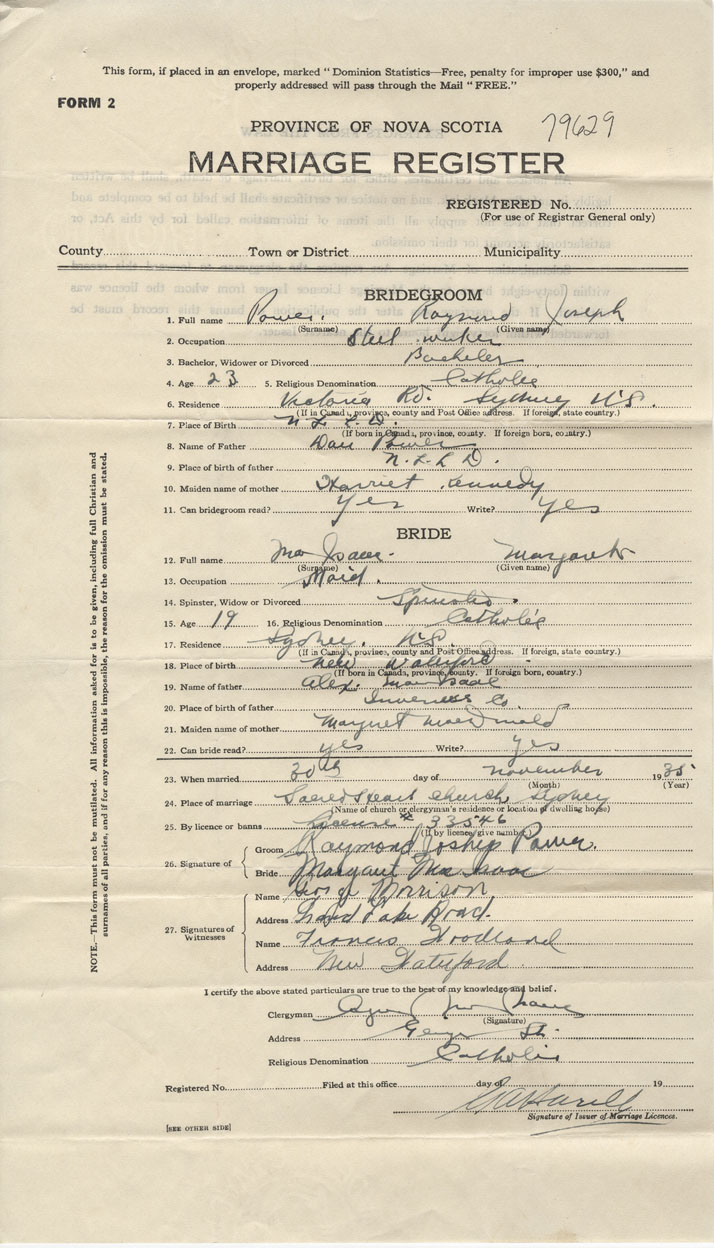 This form, if placed in an envelope, marked “ Dominion Statistics—Free, penalty for improper use $300,” and
properly addressed will pass through the Mail “ FREE.”
FORM 2
PROVINCE OF NOVA SCOTIA 79629
MARRIAGE REGISTER
REGISTERED No.
(For use of Registrar General only)
County Town or District Municipality
BRIDEGROOM
1. Full name Power. Raymond Joseph
(Surname) (Given name)
2. Occupation Steel worker
3. Bachelor, Widower or Divorced Bachelor
4. Age 23 5. Religious Denomination Catholic
6. Residence Victoria Rd. Sydney N.S.
(If in Canada, province, county and Post Office address. If foreign, state country.)
7. Place of Birth N.F.L.D.
(If born in Canada, province, county. If foreign born, country.)
8. Name of Father Dan Power
9. Place of birth of father N.F.L.D.
10. Maiden name of mother Harriet Kennedy
11. Can bridegroom read? Yes Write? Yes
BRIDE
12. Full name Mac Isaac Margaret
(Surname) (Given name)
13. Occupation Maid.
14. Spinster, Widow or Divorced Spinster.
15. Age 19 16. Religious Denomination Catholic
17. Residence Sydney. N.S.
(If in Canada, province, county and Post Office address. If foreign, state country.)
18. Place of birth New Waterford
(If born in Canada, province, county. If foreign born, country.)
19. Name of father Alex. Mac Isaac
20. Place of birth of father Inverness Co.
21. Maiden name of mother Margret MacDonald
22. Can bride read? yes Write? yes
23. When married 30th day of November 1935
(Month) (Year)
24. Place of marriage Sacred Heart Church, Sydney
(Name of church or clergyman's residence or location of dwelling house)
25. By licence or banns License # 33546
(If by licence, give number)
26. Signature of
Groom Raymond Joship Power.
Bride Margaret Mac Isaac
27. Signatures of Witnesses
Name Morrison
Address Grand Lake Road.
Name Francis Woodland
Address New Waterford
I certify the above stated particulars are true to the best of my knowledge and belief.
Clergyman
(Signature)
Address George St.
Religious Denomination Catholic
Registered No. Filed at this office day of 19
Signature of Issuer of Marriage Licences.
[SEE OTHER SIDE]
NOTE.—This form must not be mutilated. All information asked for is to be given, including full Christian and
surnames of all parties, and if for any reason this is impossible, the reason for the omission must be stated.